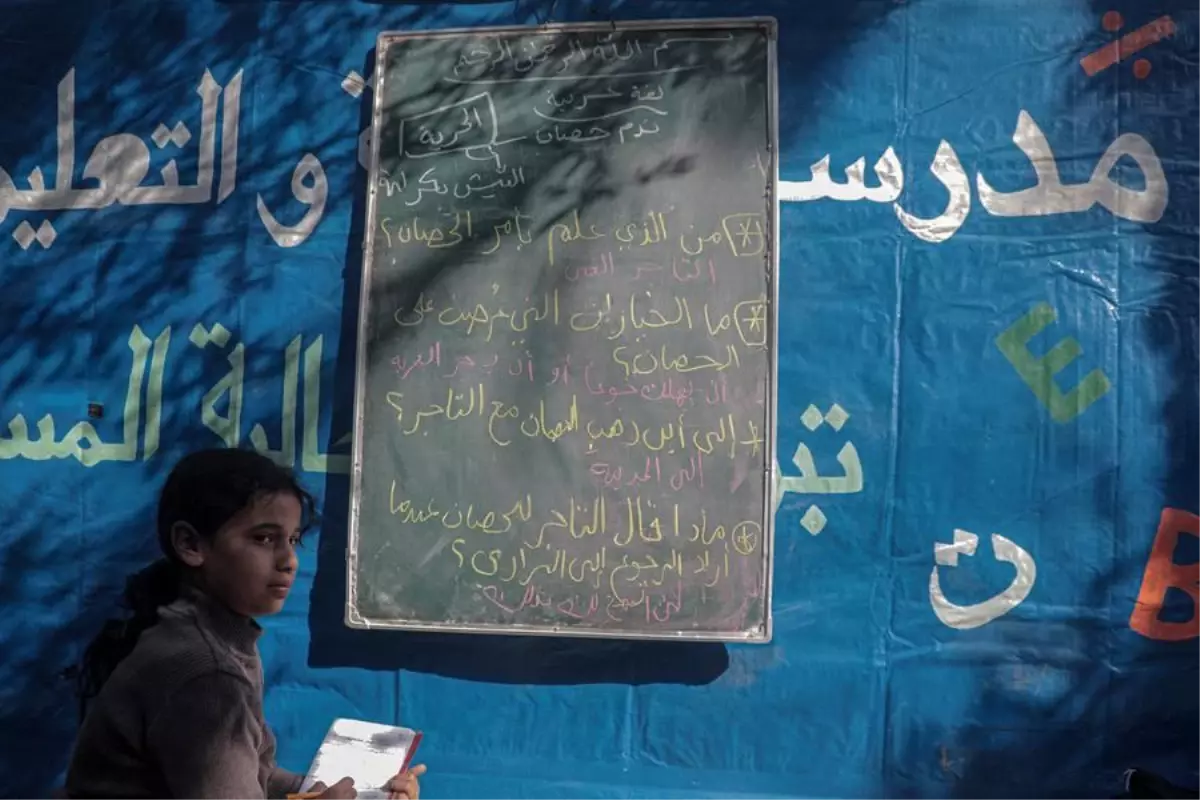 بسم الله الرحمن الرحيم
لغة عربية
ندم حصان
الحرية
العيش بكرامة
* من الذي علم بأمر الحصان؟
التاجر الغني
* ما الخيارات التي عُرضت على
الحصان؟
أن يهلك جوعاً أو أن يجر العربة
* إلى أين ذهب الحصان مع التاجر؟
إلى المدينة
* ماذا قال التاجر للحصان عندما
أراد الرجوع إلى البراري؟
لن أسمح لك بذلك
مدرسة
و التعليم
المس
E
ت
B